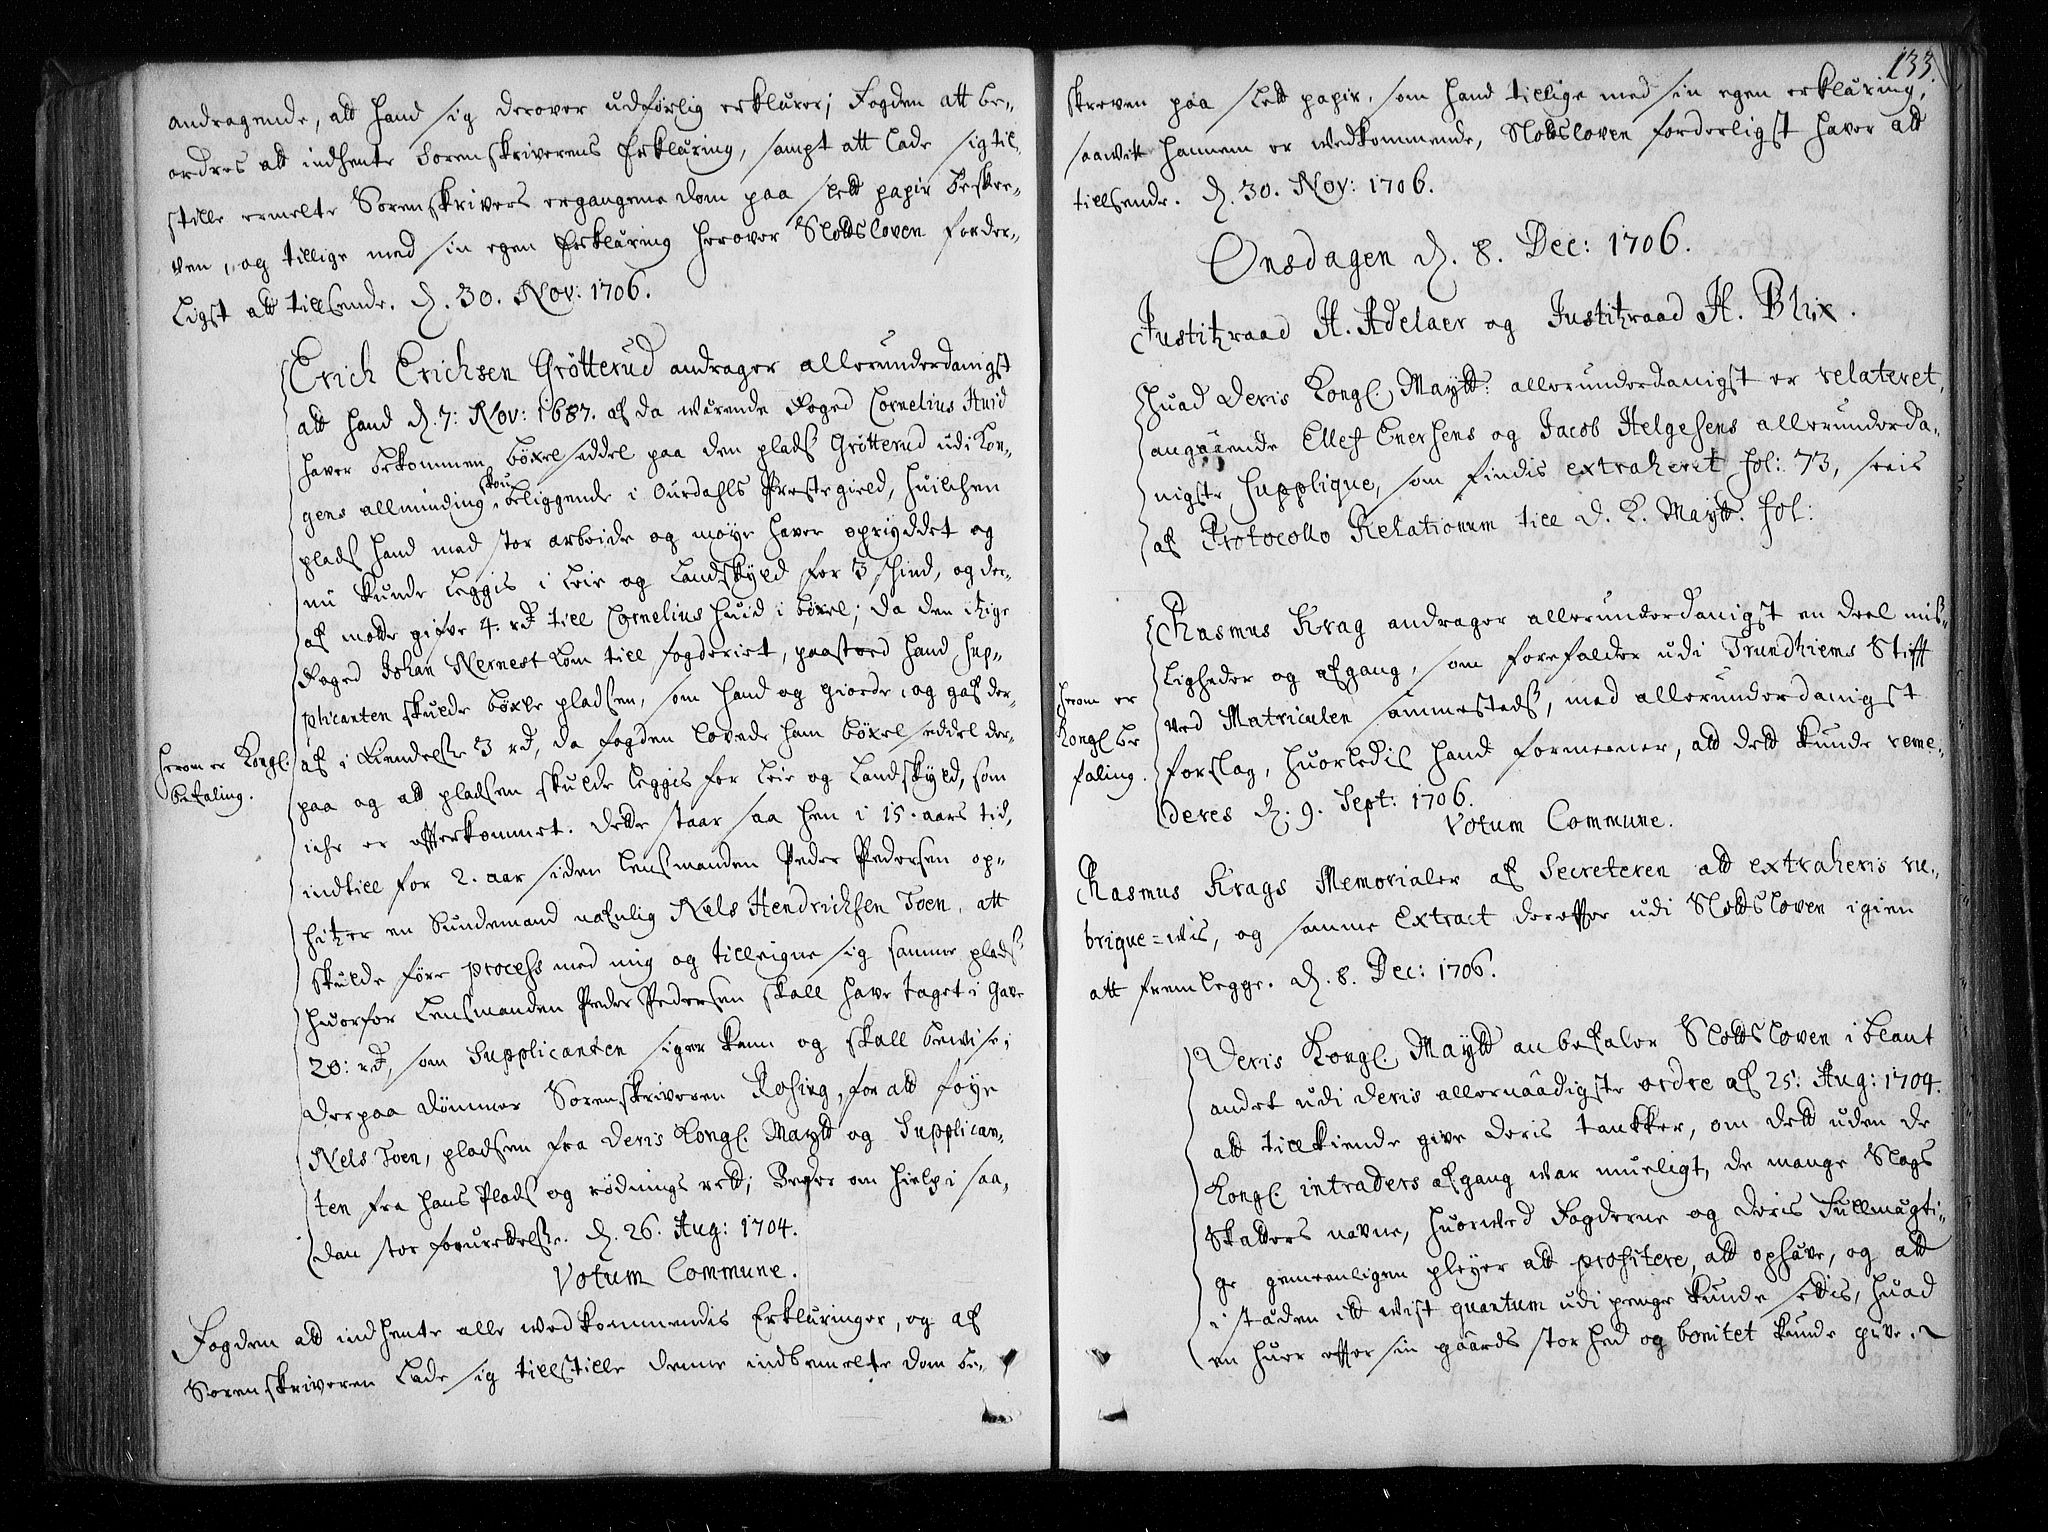 andragende, att hand sig derover udførlig erklærer; Fogden att be-
ordres att indhente Sorenskriverens Erklæring, sampt att lade sig til-
stille ermelte Sorenskrivers ergangene dom paa slett papir beskre-
ven, og tillige med sin egen Erklæring herover Slottsloven forder-
Ligst att tillsende. D. 30. Nov: 1706.
Erich Erichsen Grøtterud andrager allerunderdanigst
att hand d. 7: Nov: 1687. af da wærende Foged Cornelius Huid
haver bekommen böxelseddel paa den plads Grøtterud udi Kon-
gens allminding skou beliggende i Ourdahls Præstegield, huilchen
plads hand med stor arbeide og møye haver opryddet og
nu kunde leggis i leie og Landskyld for 3 skind, og der-
af motte gifve 4. rd till Cornelius Huid i böxel; da den itzige
Foged Johan Nernest kom till fogderiet, paastoed hand Sup-
plicanten skulde böxle pladsen, som hand og giorde, og gaf der-
af i Kiendelse 3 rd, da fogden lovede ham böxelseddel der-
paa og att pladsen skulde leggis for leie og Landskyld, som
iche er efterkommet. dette staar saa hen i 15. aars tid,
indtill for 2. aar siden lensmanden Peder Pedersen op-
hitzer en Sundemand nafnlig Nels Hendrichsen Toen, att
skulde føre process med mig og tilleigne sig samme plads
huorfor lensmanden Peder Pedersen skall have taget i gave
20: rd, som Supplicanten siger kand og skall bevise;
derpaa dømmer Sorenskriveren Rosing, for att føye
Nels Toen, pladsen fra deris Kongl. Maytt og Supplican-
ten fra hans Plads og rødnings rett; Beder om hielp i saa-
dan stor forurettelse. D. 26. Aug: 1704.
Votum Commune.
herom er Kongl.
befaling.
Fogden att indhente alle wedkommendis Erklæringer, og af
Sorenskriveren lade sig tillstille denne indbemelte dom be-
133.
skreven paa slett papir, som hand tillige med sin egen erklæring,
saawit hannem er wedkommende, Slottsloven forderligst haver att
tillsende. D. 30. Nov: 1706.
Onsdagen d. 8. Dec: 1706.
Justitzraad H. Adelaer og Justitzraad H. Blix.
Huad Deris Kongl. Maytt: allerunderdanigst er relateret,
angaaende Ellef Enersens og Jacob Helgesens allerunderda-
nigste Supplique, som findis extraheret fol: 73, seeis
af Protocollo Relationum till D. K. Maytt. fol:
Rasmus Krag andrager allerunderdanigst en deel mis-
ligheder og afgang, som forefalder udi Trundhiems Stifft
ved Matriculen sammesteds, med allerunderdanigst
forslag, huorledis hand formeener, att dett kunde reme-
deres d. 9. Sept: 1706.
Votum Commune.
herom er
Kongl be
faling.
Rasmus Krags Memorialer af Secreteren att extraheris ru-
brique=wis, og samme Extract derefter udi Slottsloven igien
att fremlegge. D. 8. Dec: 1706.
Deris Kongl. Maytt anbefaler Slottsloven i blant
andet udi deris allernaadigste ordre af 25: Aug: 1704.
att tillkiende give deris tankker, om dett uden de
Kongl. intraders afgang war mueligt, de mange Slags
Skatters navne, huorved Fogderne og deris Fullmægti-
ge gemeenligen pleyer att profitere, att ophæve, og att
i stæden itt wist quantum udi penge kunde settis, huad
en huer efter sin gaards storhed og bonitet kunde give.